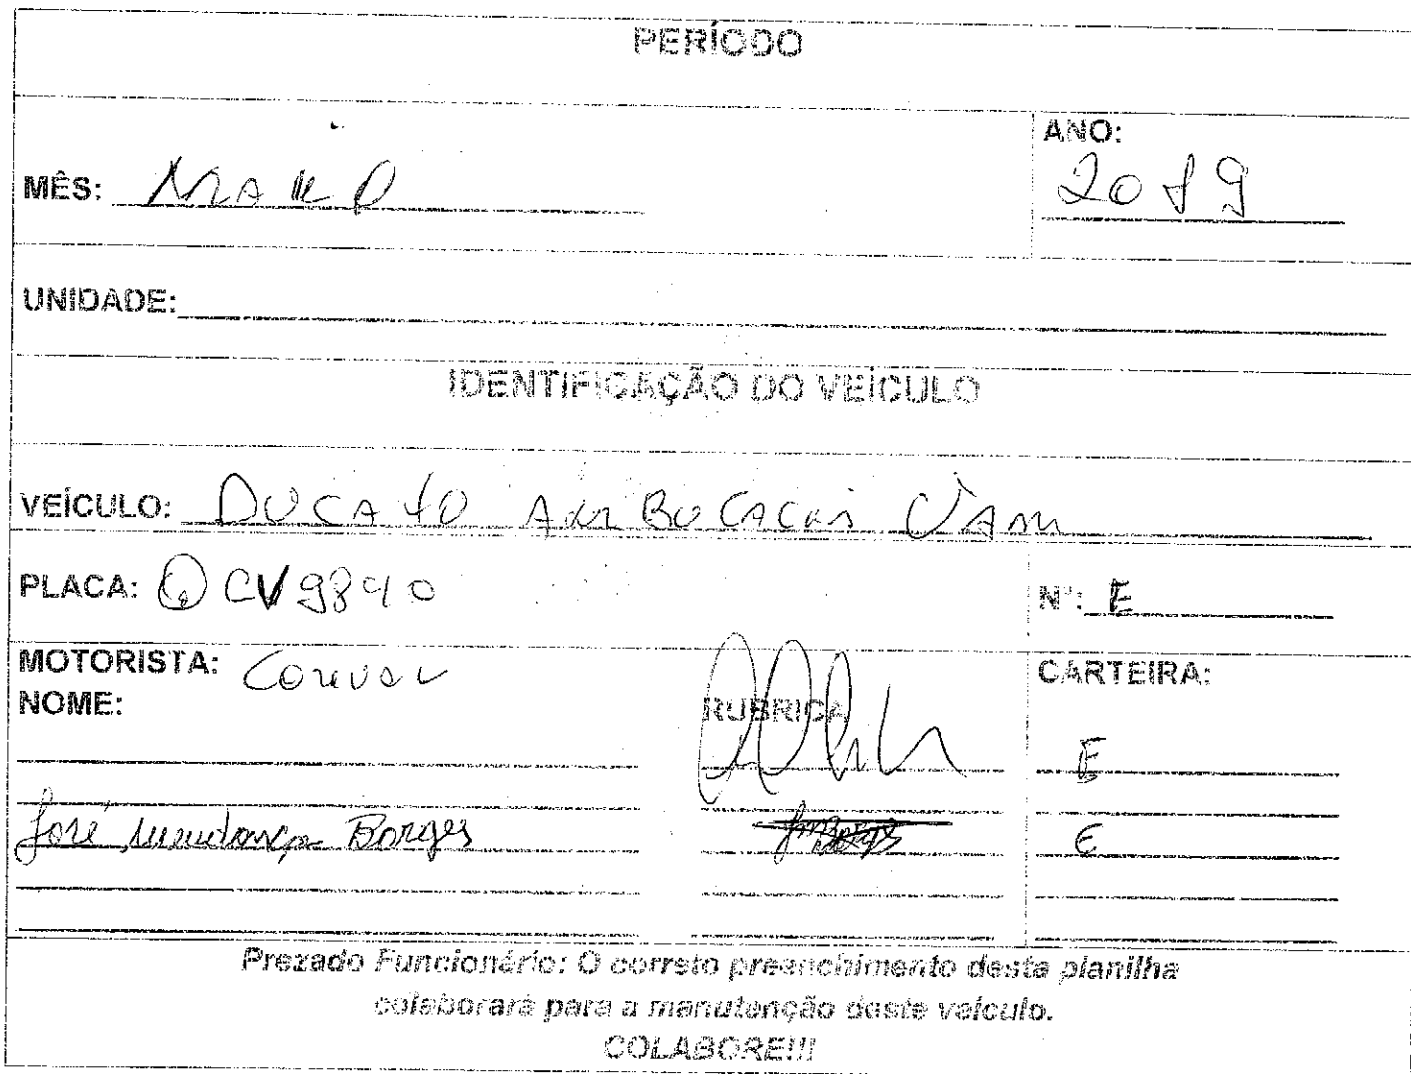 PERÍODO
MÊS:
ANO:
2019
UNIDADE:
IDENTIFICAÇÃO DO VEÍCULO
VEÍCULO: DUCATO VAM
PLACA: QCV9840
Nº: E
MOTORISTA:
NOME:
RUBRICA
CARTEIRA:
E
José Mendonça Borges
E
Prezado Funcionário: O correto preenchimento desta planilha
colaborará para a manutenção deste veículo.
COLABORE!!!